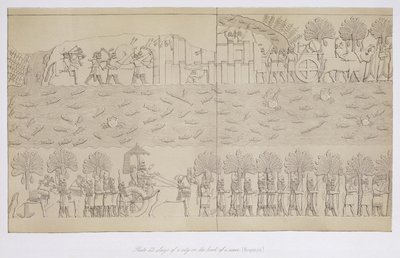 Plate 43. Siege of a city on the bank of a river. (Kouyunjik)